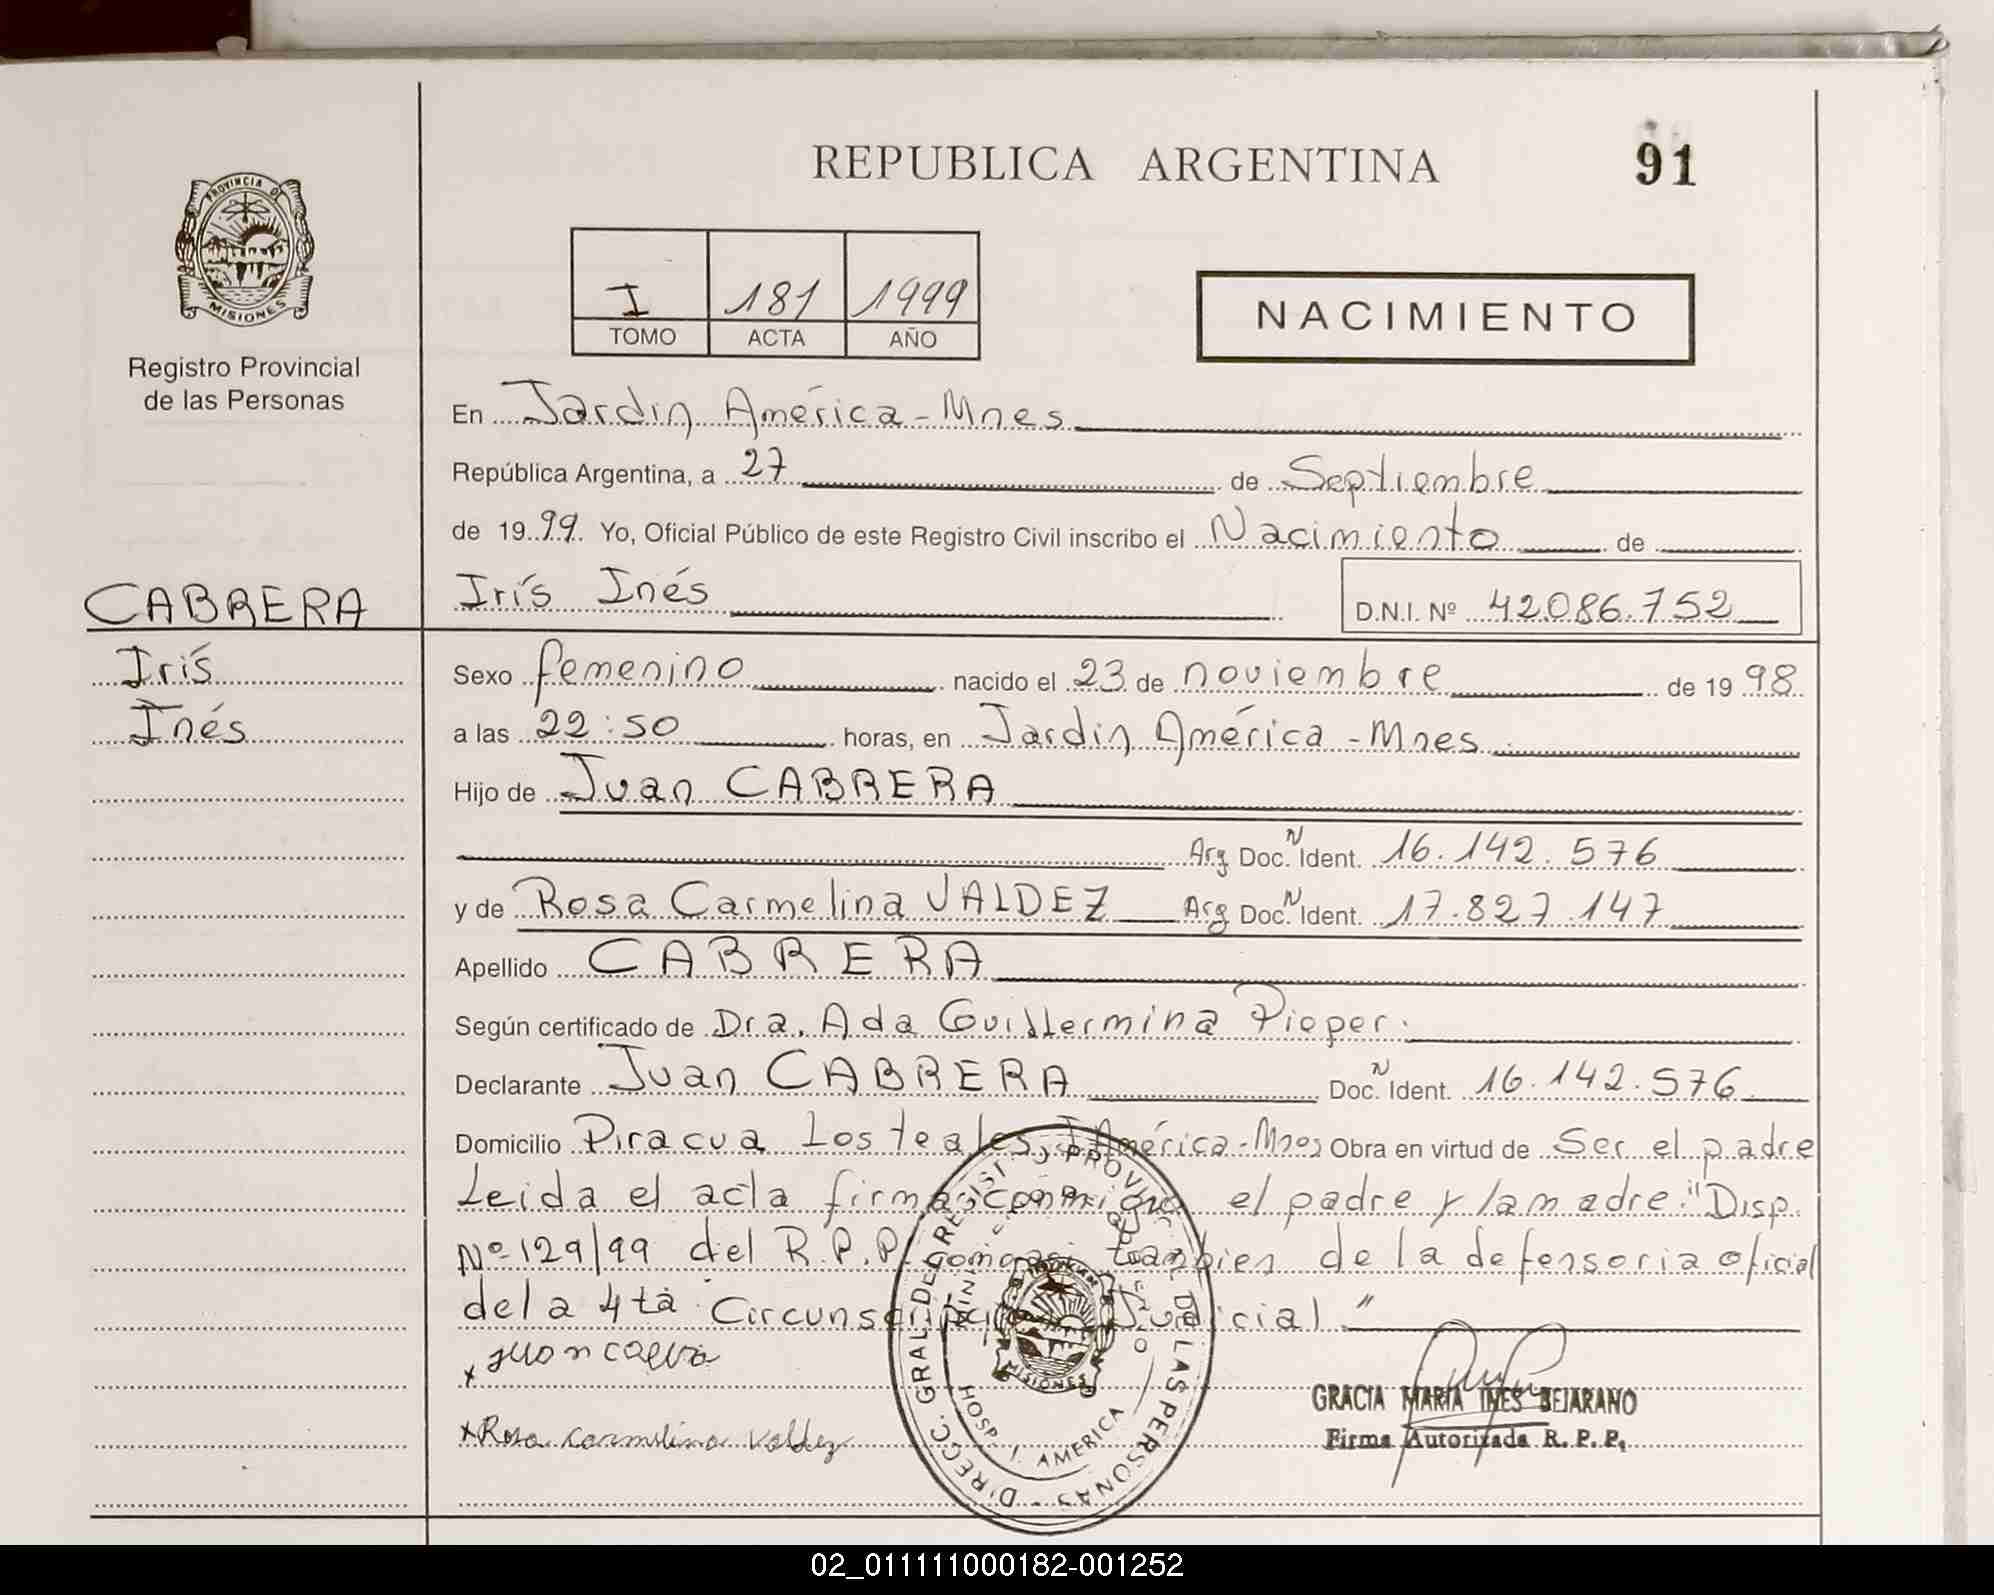 REPUBLICA ARGENTINA
91
PROVINCIA DE
MISIONES
Registro Provincial
de las Personas
I 181 1999
TOMO ACTA AÑO
NACIMIENTO
En Jardin América - Mnes
República Argentina, a 27 de Septiembre
de 19 99. Yo, Oficial Público de este Registro Civil inscribo el Nacimiento de
CABRERA
Irís Inés
D.N.I. Nº 42.086.752
Irís
Inés
Sexo femenino nacido el 23 de noviembre de 19 98
a las 22:50 horas, en Jardin América - Mnes
Hijo de Juan CABRERA
Arg Doc. N Ident. 16.142.576
y de Rosa Carmelina VALDEZ Arg Doc. N Ident. 17.827.147
Apellido CABRERA
Según certificado de Dra. Ada Guillermina Pieper.
Declarante Juan CABRERA Doc. N Ident. 16.142.576
Domicilio Piracua Los teales J América - Mnes Obra en virtud de Ser el padre
Leida el acta firman conmigo el padre y la madre. "Disp.
Nº 129/99 del R.P.P. como asi tambien de la defensoria oficial
de la 4ta Circunscripción Judicial."
x Rosa Carmelina Valdez
GRACIA MARIA INES BEJARANO
Firma Autorizada R. P. P.
DIRECC. GRAL. DE REGIST PROVINC. DE LAS PERSONAS
HOSP. J. AMERICA
MISIONES
02_011111000182-001252